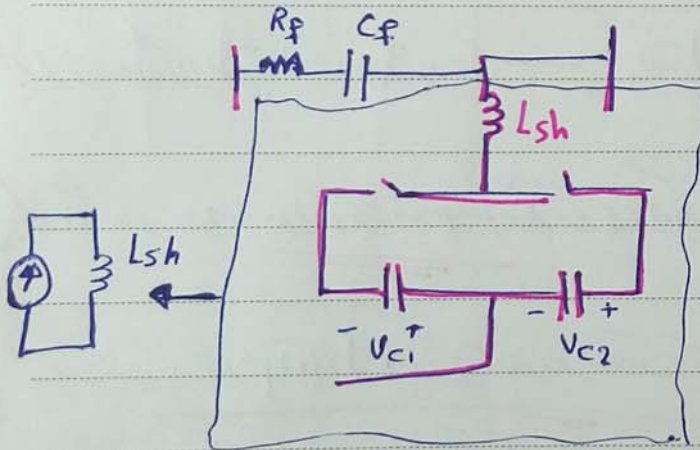 Rf Cf
Lsh
Lsh
- Vc1 +
- Vc2 +